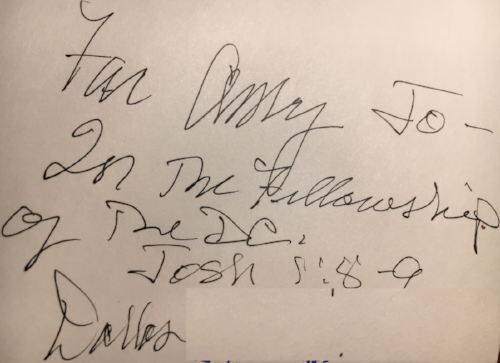 For Amy Jo-
In The Fellowship
of The D.C.
Josh 1:8-9
Dallas